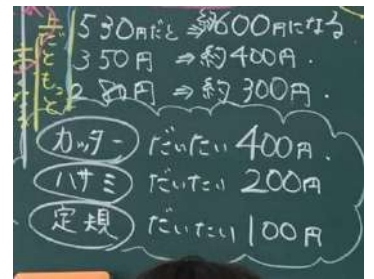 530円だと⇒約600円になる
350円⇒約400円.
円⇒約300円.
カッター だいたい400円.
ハサミ だいたい200円
定規 だいたい100円
だともっと